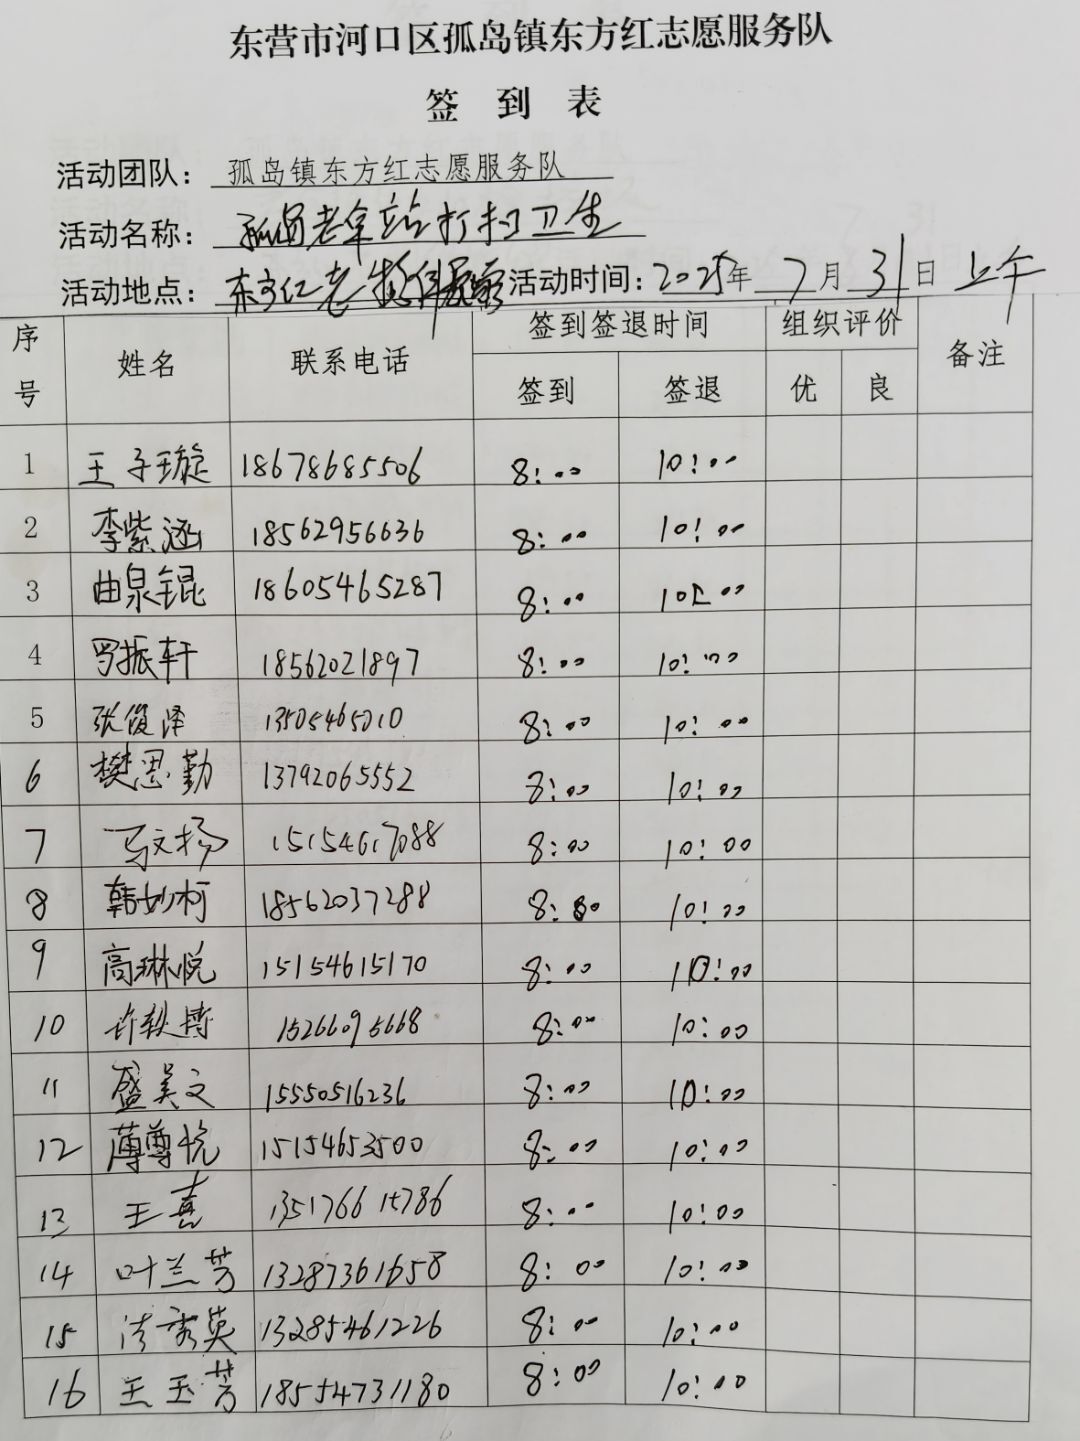 东营市河口区孤岛镇东方红志愿服务队
签 到 表
活动团队：孤岛镇东方红志愿服务队
活动名称：孤岛老年站打扫卫生
活动地点：东方红老 活动时间：2025年7月31日 上午
序号 姓名 联系电话 签到签退时间 组织评价 备注
签到 签退 优 良
1 王子璇 18678685506 8:00 10:00
2 李紫涵 18562956636 8:00 10:00
3 曲泉锟 18605465287 8:00 10:00
4 罗振轩 18562021897 8:00 10:00
5 张俊泽 13505465010 8:00 10:00
6 樊思勤 13792065552 8:00 10:00
7 马文扬 15154617088 8:00 10:00
8 韩妙柯 18562037288 8:00 10:00
9 高琳悦 15154615170 8:00 10:00
10 许轶博 15266095668 8:00 10:00
11 盛昊文 15550516236 8:00 10:00
12 薄尊悦 15154653500 8:00 10:00
13 王喜 13517661786 8:00 10:00
14 叶兰芳 13287361658 8:00 10:00
15 秀英 13285461226 8:00 10:00
16 王玉芳 18554731180 8:00 10:00